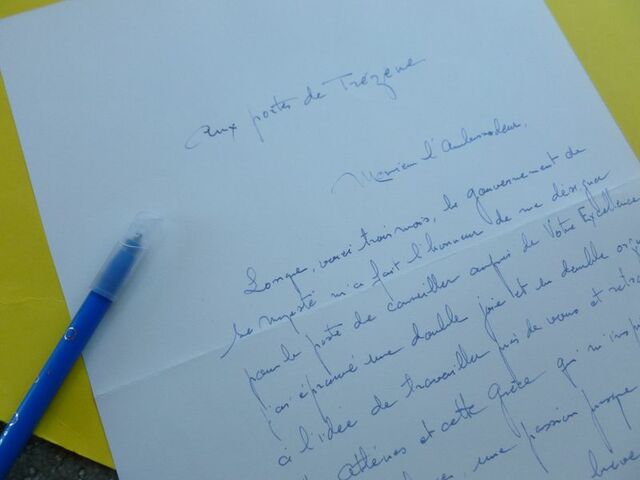 Aux portes de Trézène
Monsieur l'Ambassadeur,
Lorsque, voici trois mois, le gouvernement de
Sa Majesté m'a fait l'honneur de me désigner
pour le poste de conseiller auprès de Votre Excellence
j'ai éprouvé une double joie et en double
à l'idée de travailler près de vous et
Athènes et cette Grèce qui m'inspi
une passion presque